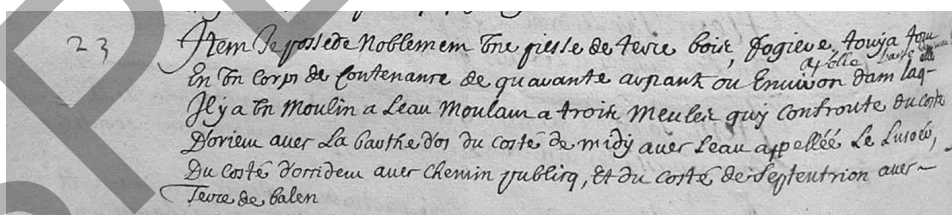 23 Item Je possede Noblement Une piesse de terre bois, fogiere, touja tout
apelle
En Un corps de Contenance de quarante arpant ou Environ dam laq-
Il y a Un Moulin a Leau Moulam a trois Meules quy Confronte du costé
Dorient aver La Gauthe dos du costé de midy aver Leau appellée Le
Du Costé doccident aver Chemin publicq, Et du Costé de Septentrion aver
Terre de balen